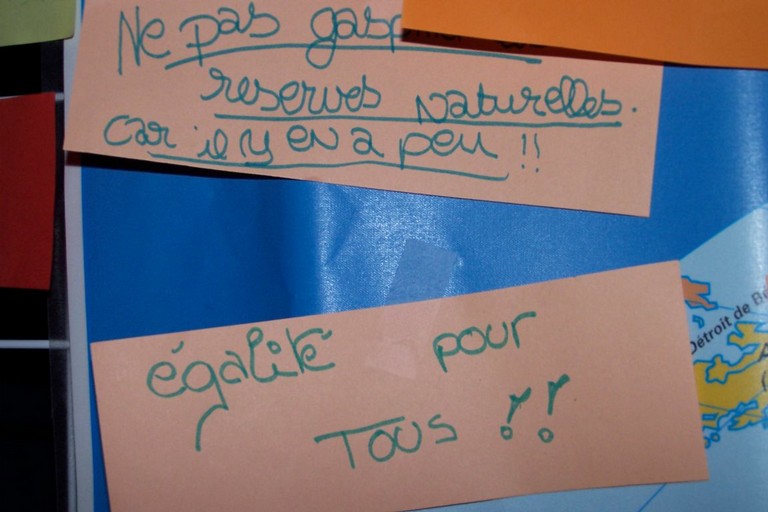 Ne pas
reserves naturelles.
car il y en a peu !!
égalité pour
Tous !!
Détroit de